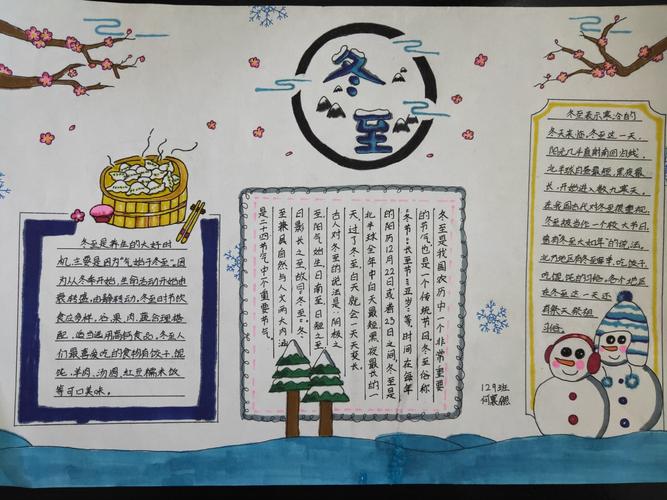 冬
至
冬至是养生的大好时
机,主要是因为"气始于冬至"。因
为从冬季开始,生命活动开始由
盛,由静转动。冬至时节饮
食应多样,谷、果、肉、蔬合理搭
配,适当选用高钙食品。冬至人
们最喜欢吃的食物有饺子、馄
饨、羊肉、汤圆、红豆糯米饭
等可口美味。
冬至是我国农历中一个非常重要
的节气,也是一个传统节日,冬至俗称
"冬节"、"长至节"、"亚岁"等,时间在每年
的阳历12月22日或者23日之间,冬至是
北半球全年中白天最短、黑夜最长的一
天,过了冬至,白天就会一天天变长。
古人对冬至的说法是:阴极之
至,阳气始生,日南至,日短之至,
日影长之至,故曰"冬至"。冬
至兼具自然与人文两大内涵,
是二十四节气中一个重要节气。
冬至表示寒冷的
冬天来临。冬至这一天,
阳光几乎直射南回归线,
北半球白昼最短,黑夜最
长,开始进入数九寒天。
在我国古代对冬至很重视,
冬至被当作一个较大节日,
曾有"冬至大如年"的说法。
北方地区有冬至宰羊,吃饺子、
吃馄饨的习俗。各个地区
在冬至这一天还有
祭天祭祖
习俗。
129班